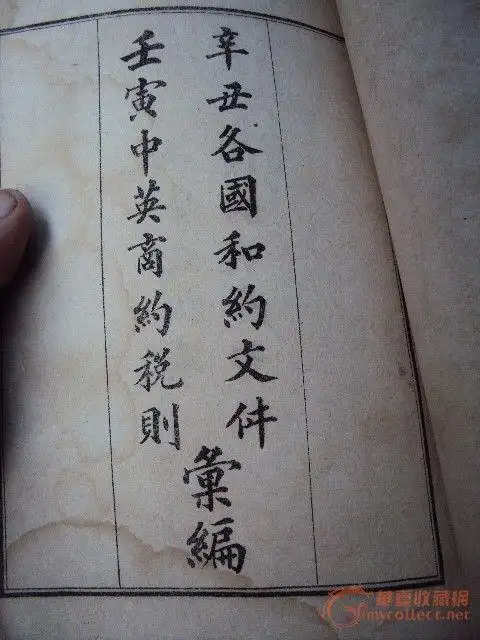 辛丑各國和約文件
壬寅中英商約税則
彙編
華夏收藏網
mycollect.net